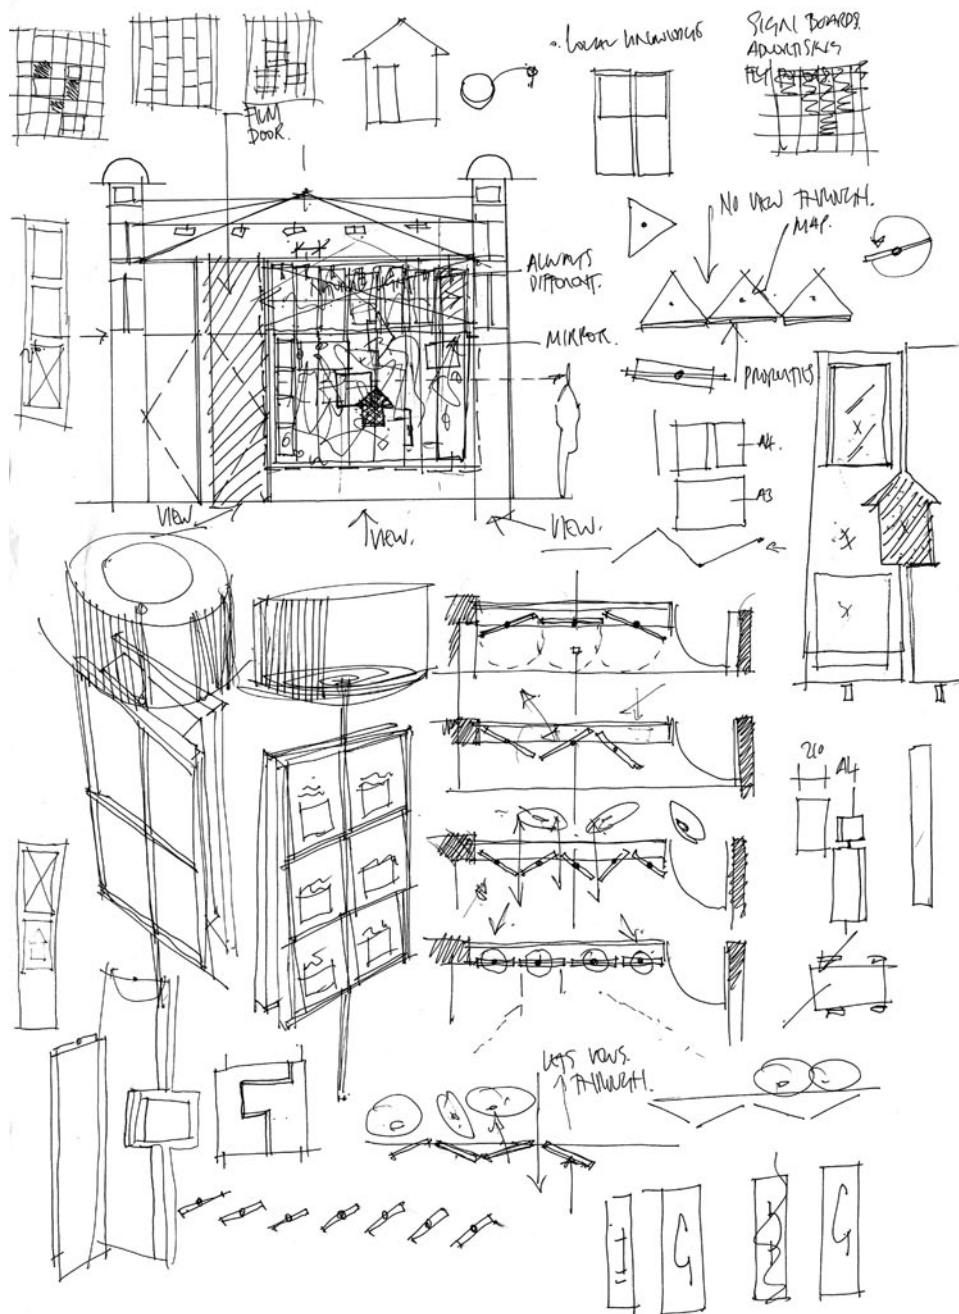 LOCAL KNOWLEDGE
SIGN BOARDS.
ADVERTISING
DOOR.
NO VIEW THROUGH.
MAP.
ALWAYS
DIFFERENT.
MIRROR.
PROPERTIES
A4.
A3
VIEW
VIEW.
VIEW.
210
A4
LETS VIEWS.
THROUGH.